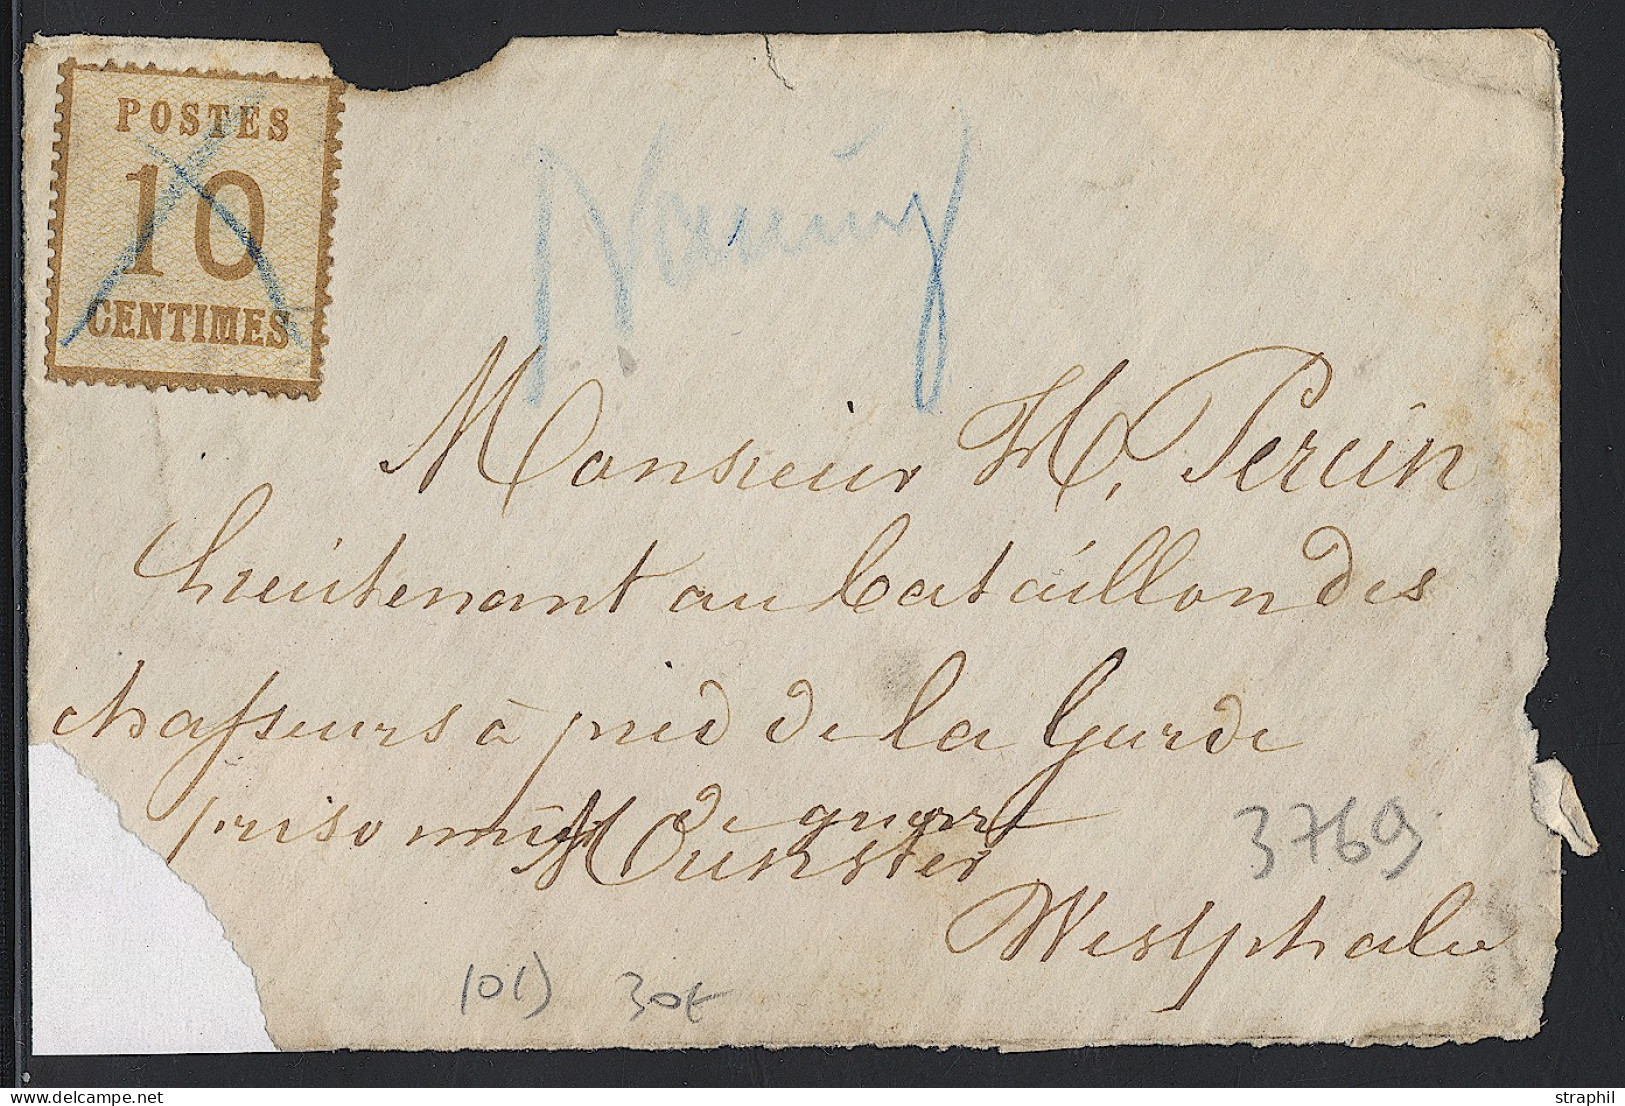 POSTES
10
CENTIMES
Monsieur H. Perrin
Lieutenant au bataillon des
chasseurs à pied de la Garde
prisonnier de guerre
Munster
Westphalie
3769
101)
30€
straphil